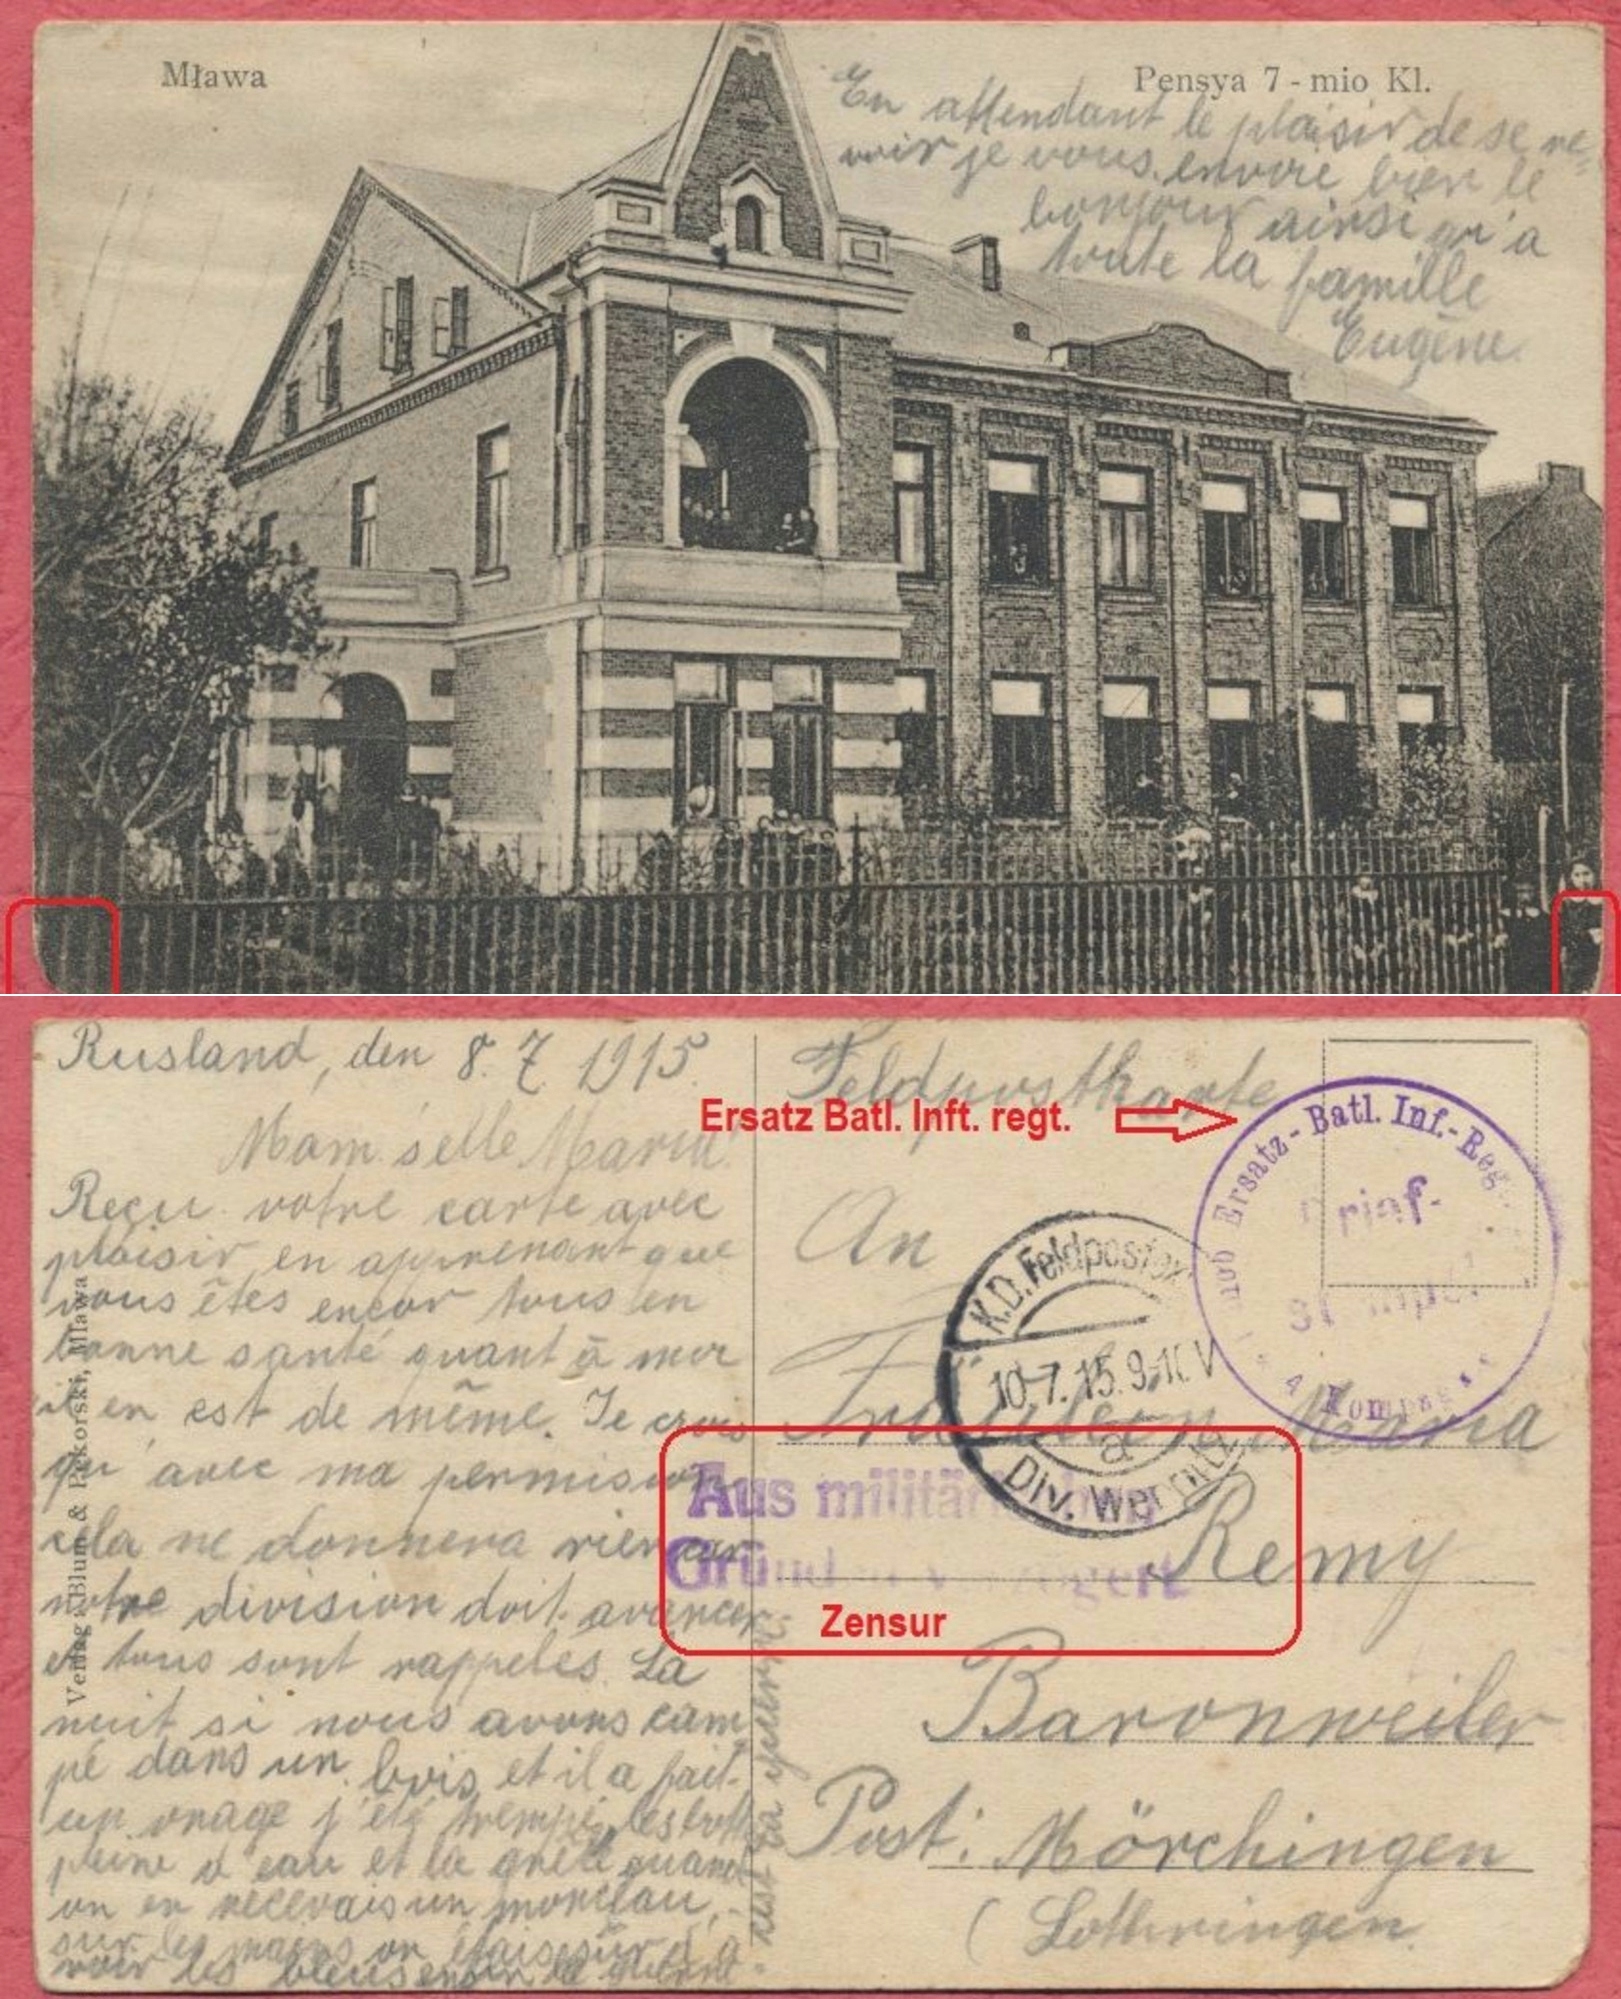 Mława
Pensya 7-mio Kl.
En attendant le plaisir de se re-
voir je vous envoie bien le
bonjour ainsi qu'a
toute la famille
Eugène.
Rusland, den 8. 7. 1915.
Mam'selle Maria!
Reçu votre carte avec
plaisir en apprenant que
vous êtes encor tous en
bonne santé quant à moi
il en est de même. Je crois
qu'avec ma permision
cela ne donnera rien car
notre division doit avancer
et tous sont rappelés. La
nuit si nous avons cam
pé dans un bois et il a fait
un orage j'été trempé, les bott
pleine d'eau et la grêle quand
on en recevais un morceau
sur les mains on étais sûr d'a
voir les bleus
Verlag Blum & Pekorski, Mlawa
Feldpostkarte
Ersatz Batl. Inft. regt.
mob Ersatz-Batl. Inf.-Reg.
Brief-
Stempel
4 Komp
K.D. Feldpostex
10.7.15. 9-10 V
a
Div. Wernitz
An
Fräulein Maria
Remy
Aus militärischen
Gründen verzögert
Zensur
Baronweiler
Post: Mörchingen
(Lothringen.